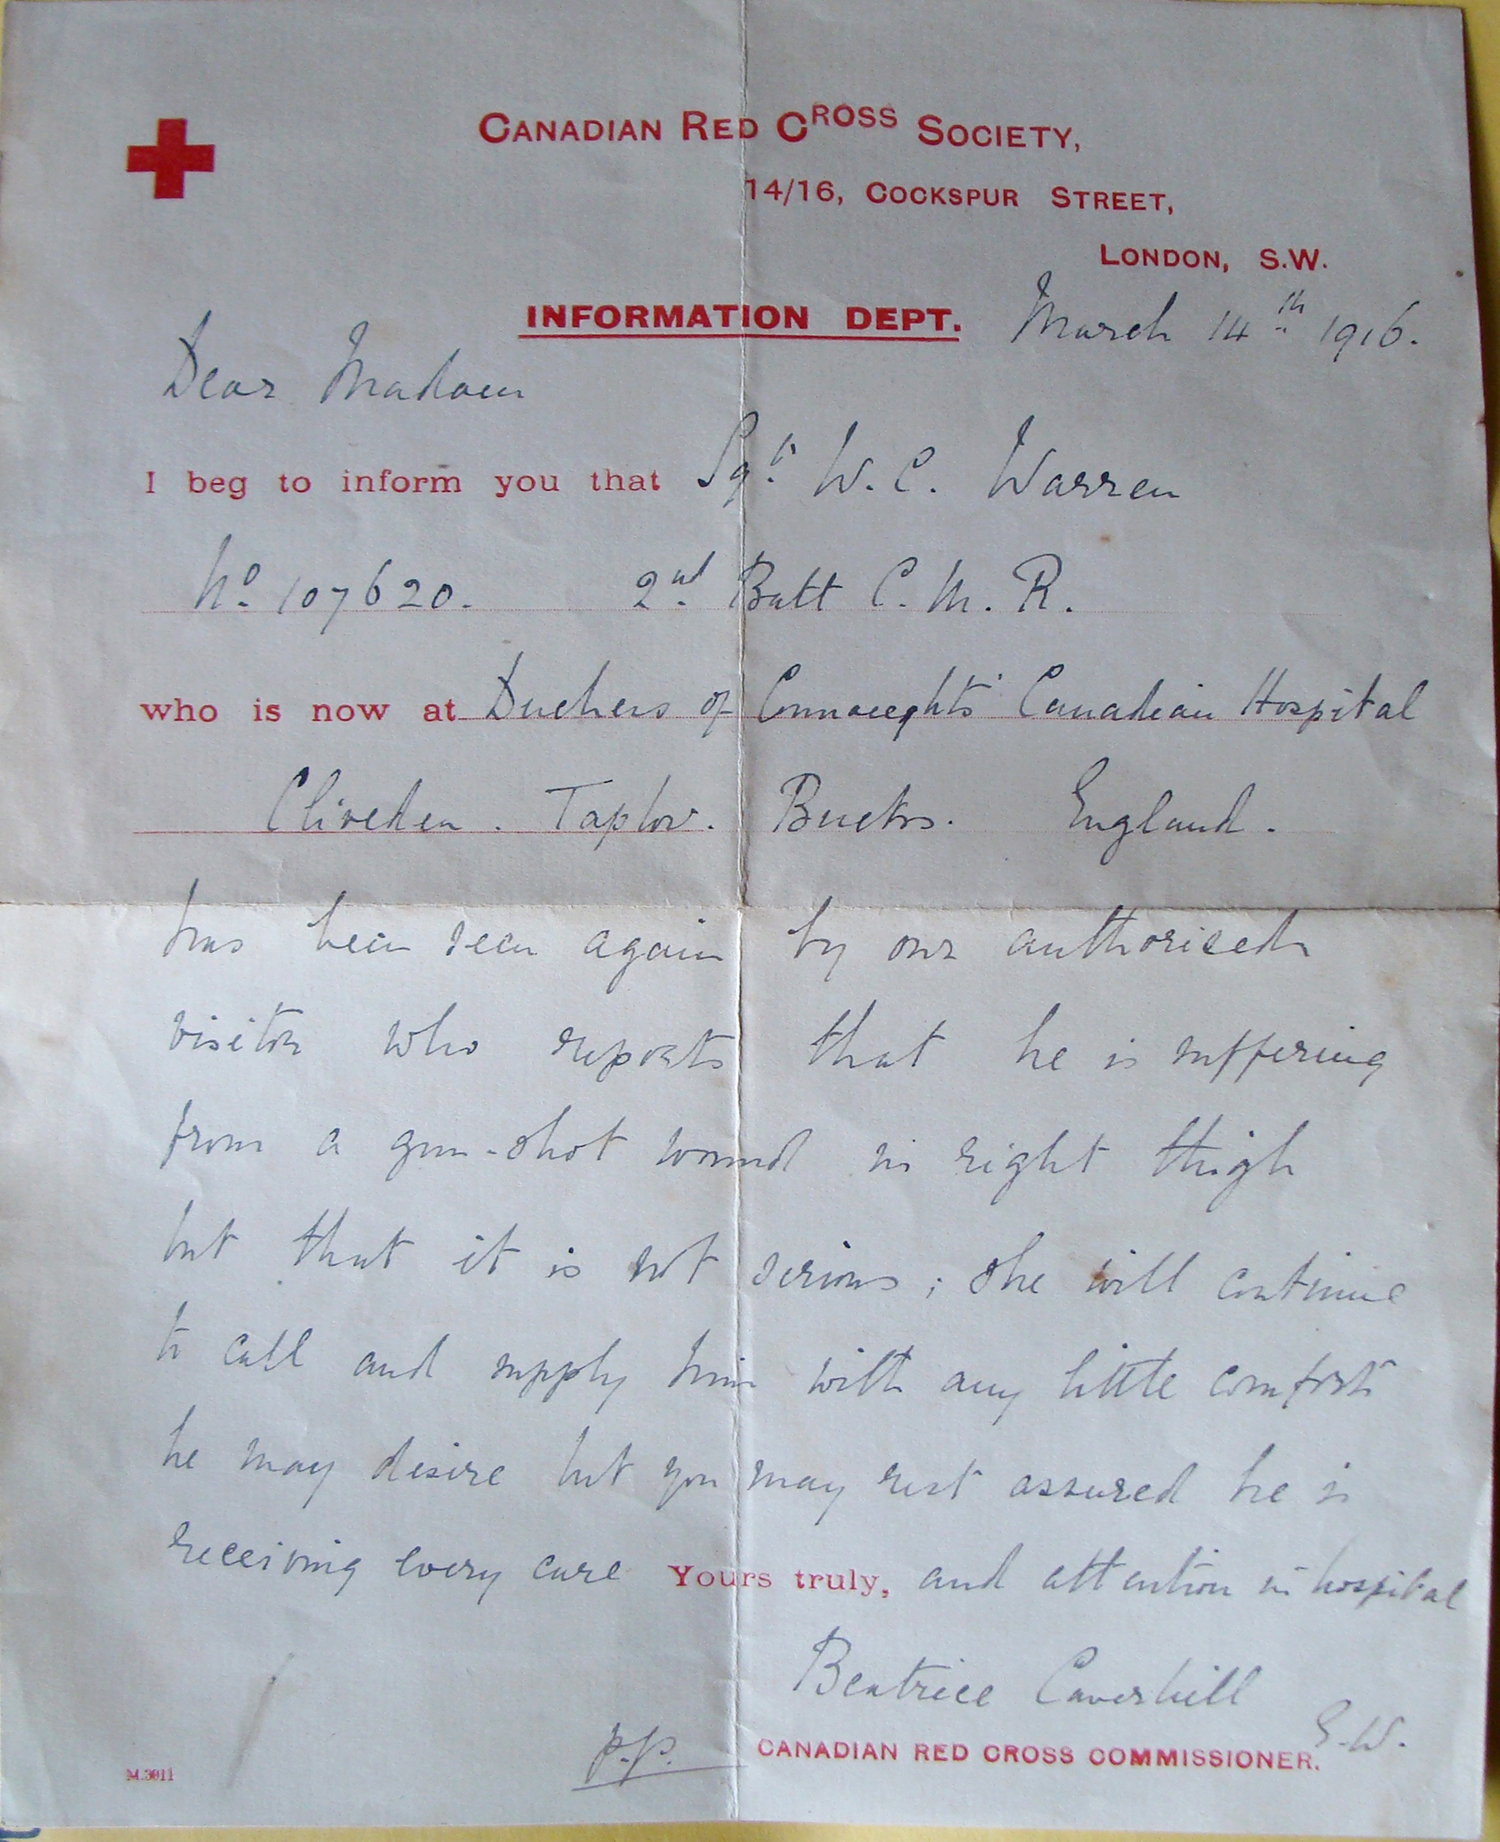 CANADIAN RED CROSS SOCIETY,
14/16, COCKSPUR STREET,
LONDON, S.W.
INFORMATION DEPT. March 14th 1916.
Dear Madam
I beg to inform you that Sgt. W. C. Warren
No. 107620. 2nd Batt C. M. R.
who is now at Duchess of Connaught's Canadian Hospital
Cliveden. Taplow. Bucks. England.
has been seen again by our authorised
visitor who reports that he is suffering
from a gun-shot wound in right thigh
but that it is not serious; she will continue
to call and supply him with any little comfort
he may desire but you may rest assured he is
receiving every care Yours truly, and attention in hospital
Beatrice Caverhill
p.p. CANADIAN RED CROSS COMMISSIONER. E.W.
M.3011